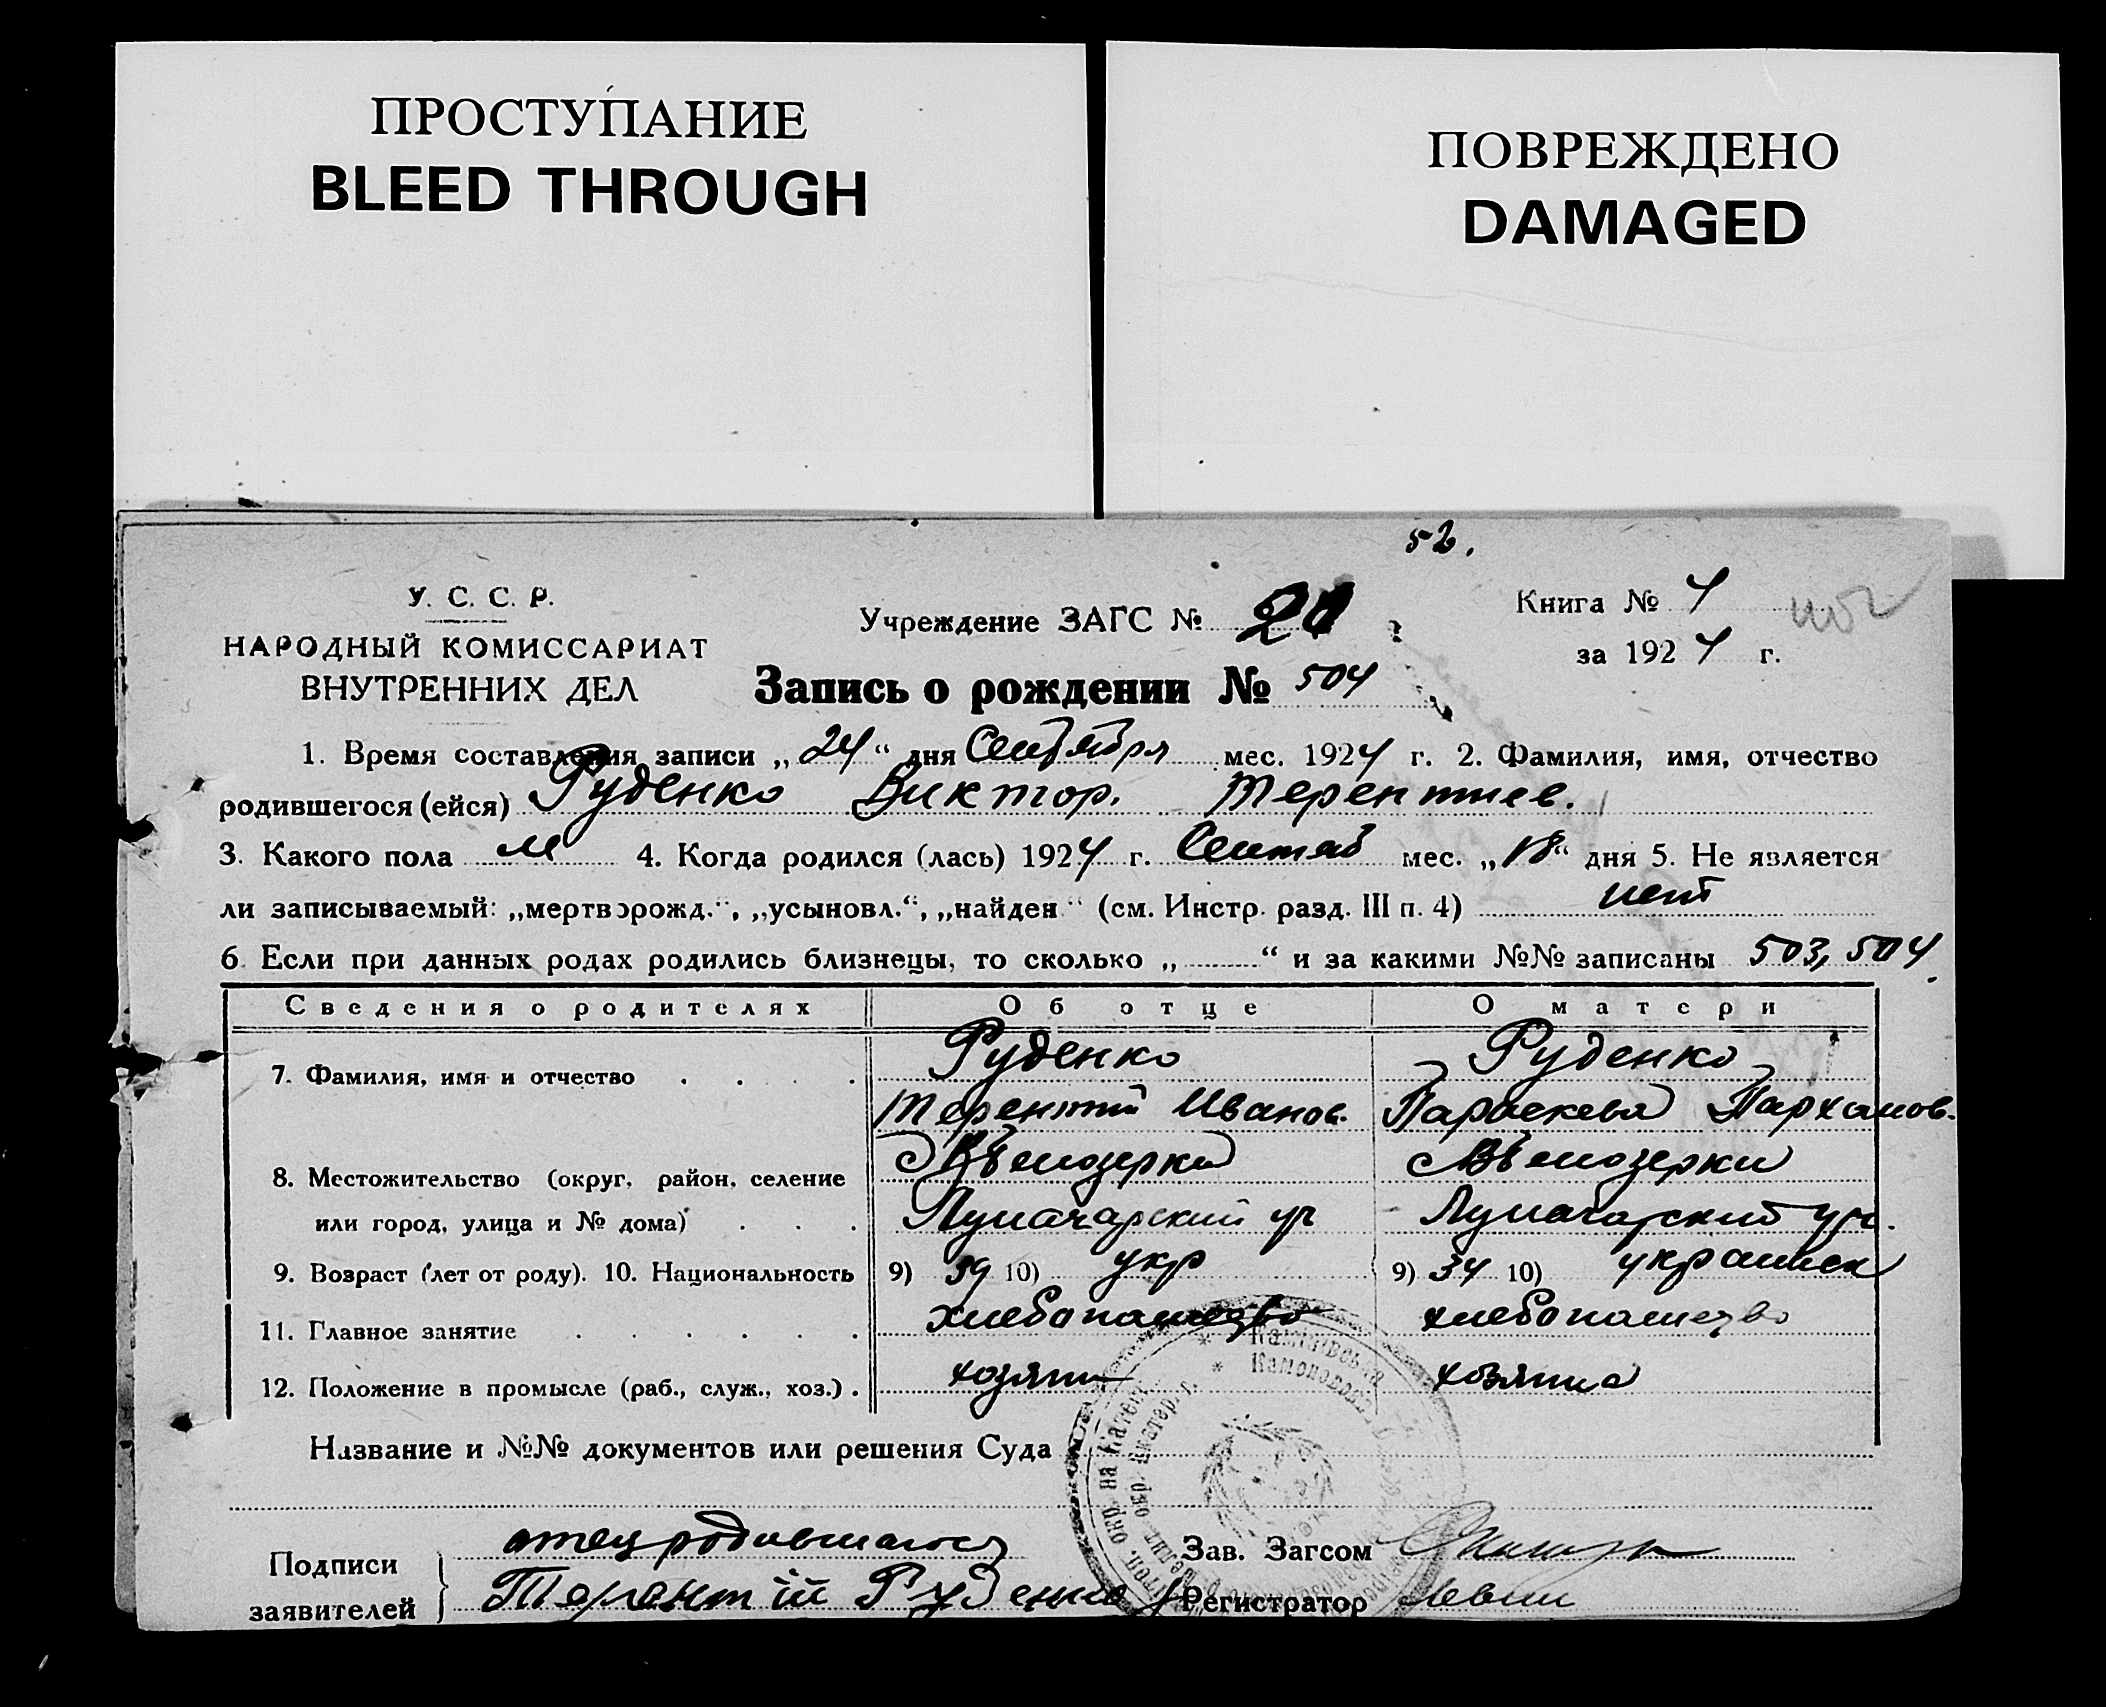 ПРОСТУПАНИЕ
BLEED THROUGH
ПОВРЕЖДЕНО
DAMAGED
52.
У. С. С. Р.
НАРОДНЫЙ КОМИССАРИАТ
ВНУТРЕННИХ ДЕЛ
Учреждение ЗАГС №
Книга № 4
за 1924 г.
Запись о рождении № 504
1. Время составления записи „24“ дня Сентября мес. 1924 г. 2. Фамилия, имя, отчество
родившегося (ейся) Руденко Виктор. Терентиев.
3. Какого пола м 4. Когда родился (лась) 1924 г. Сентяб мес. „18“ дня 5. Не является
ли записываемый: „мертворожд.“, „усыновл.“, „найден“ (см. Инстр. разд. III п. 4) нет
6. Если при данных родах родились близнецы, то сколько „ “ и за какими №№ записаны 503, 504.
Сведения о родителях Об отце О матери
7. Фамилия, имя и отчество Руденко Руденко
Терентий Иванов. Параскева Пархамов.
8. Местожительство (округ, район, селение
или город, улица и № дома) Луначарский Луначарский
9. Возраст (лет от роду). 10. Национальность 9) 39 10) укр 9) 34 10) украинск
11. Главное занятие хлебопашество хлебопашество
12. Положение в промысле (раб., служ., хоз.) . хозяин хозяина
Название и №№ документов или решения Суда
Подписи
заявителей
отец родившагося
Терентій Руденко
Зав. Загсом
Регистратор Левин